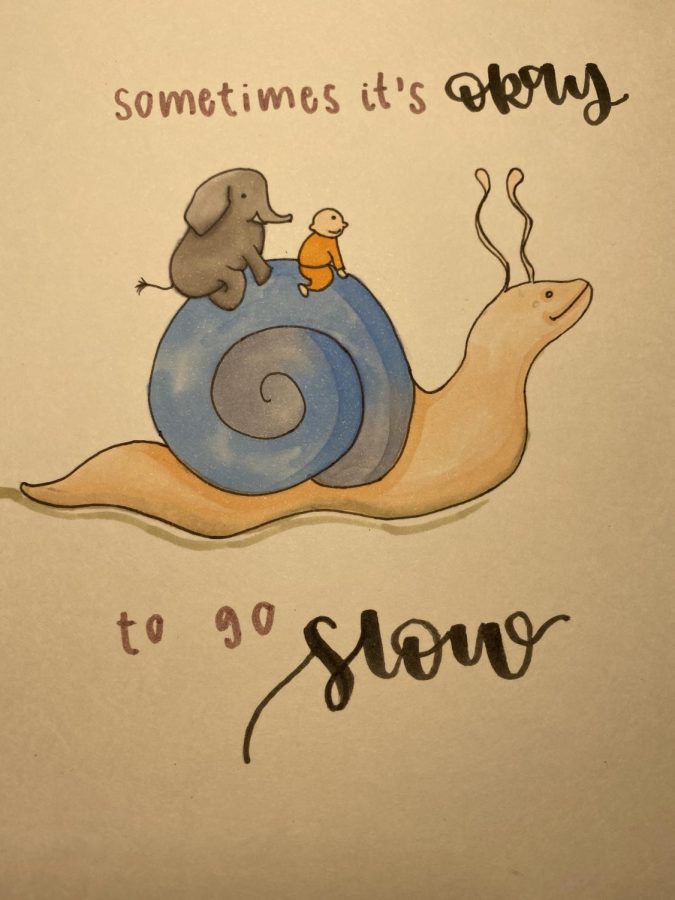 sometimes it's okay
to go slow